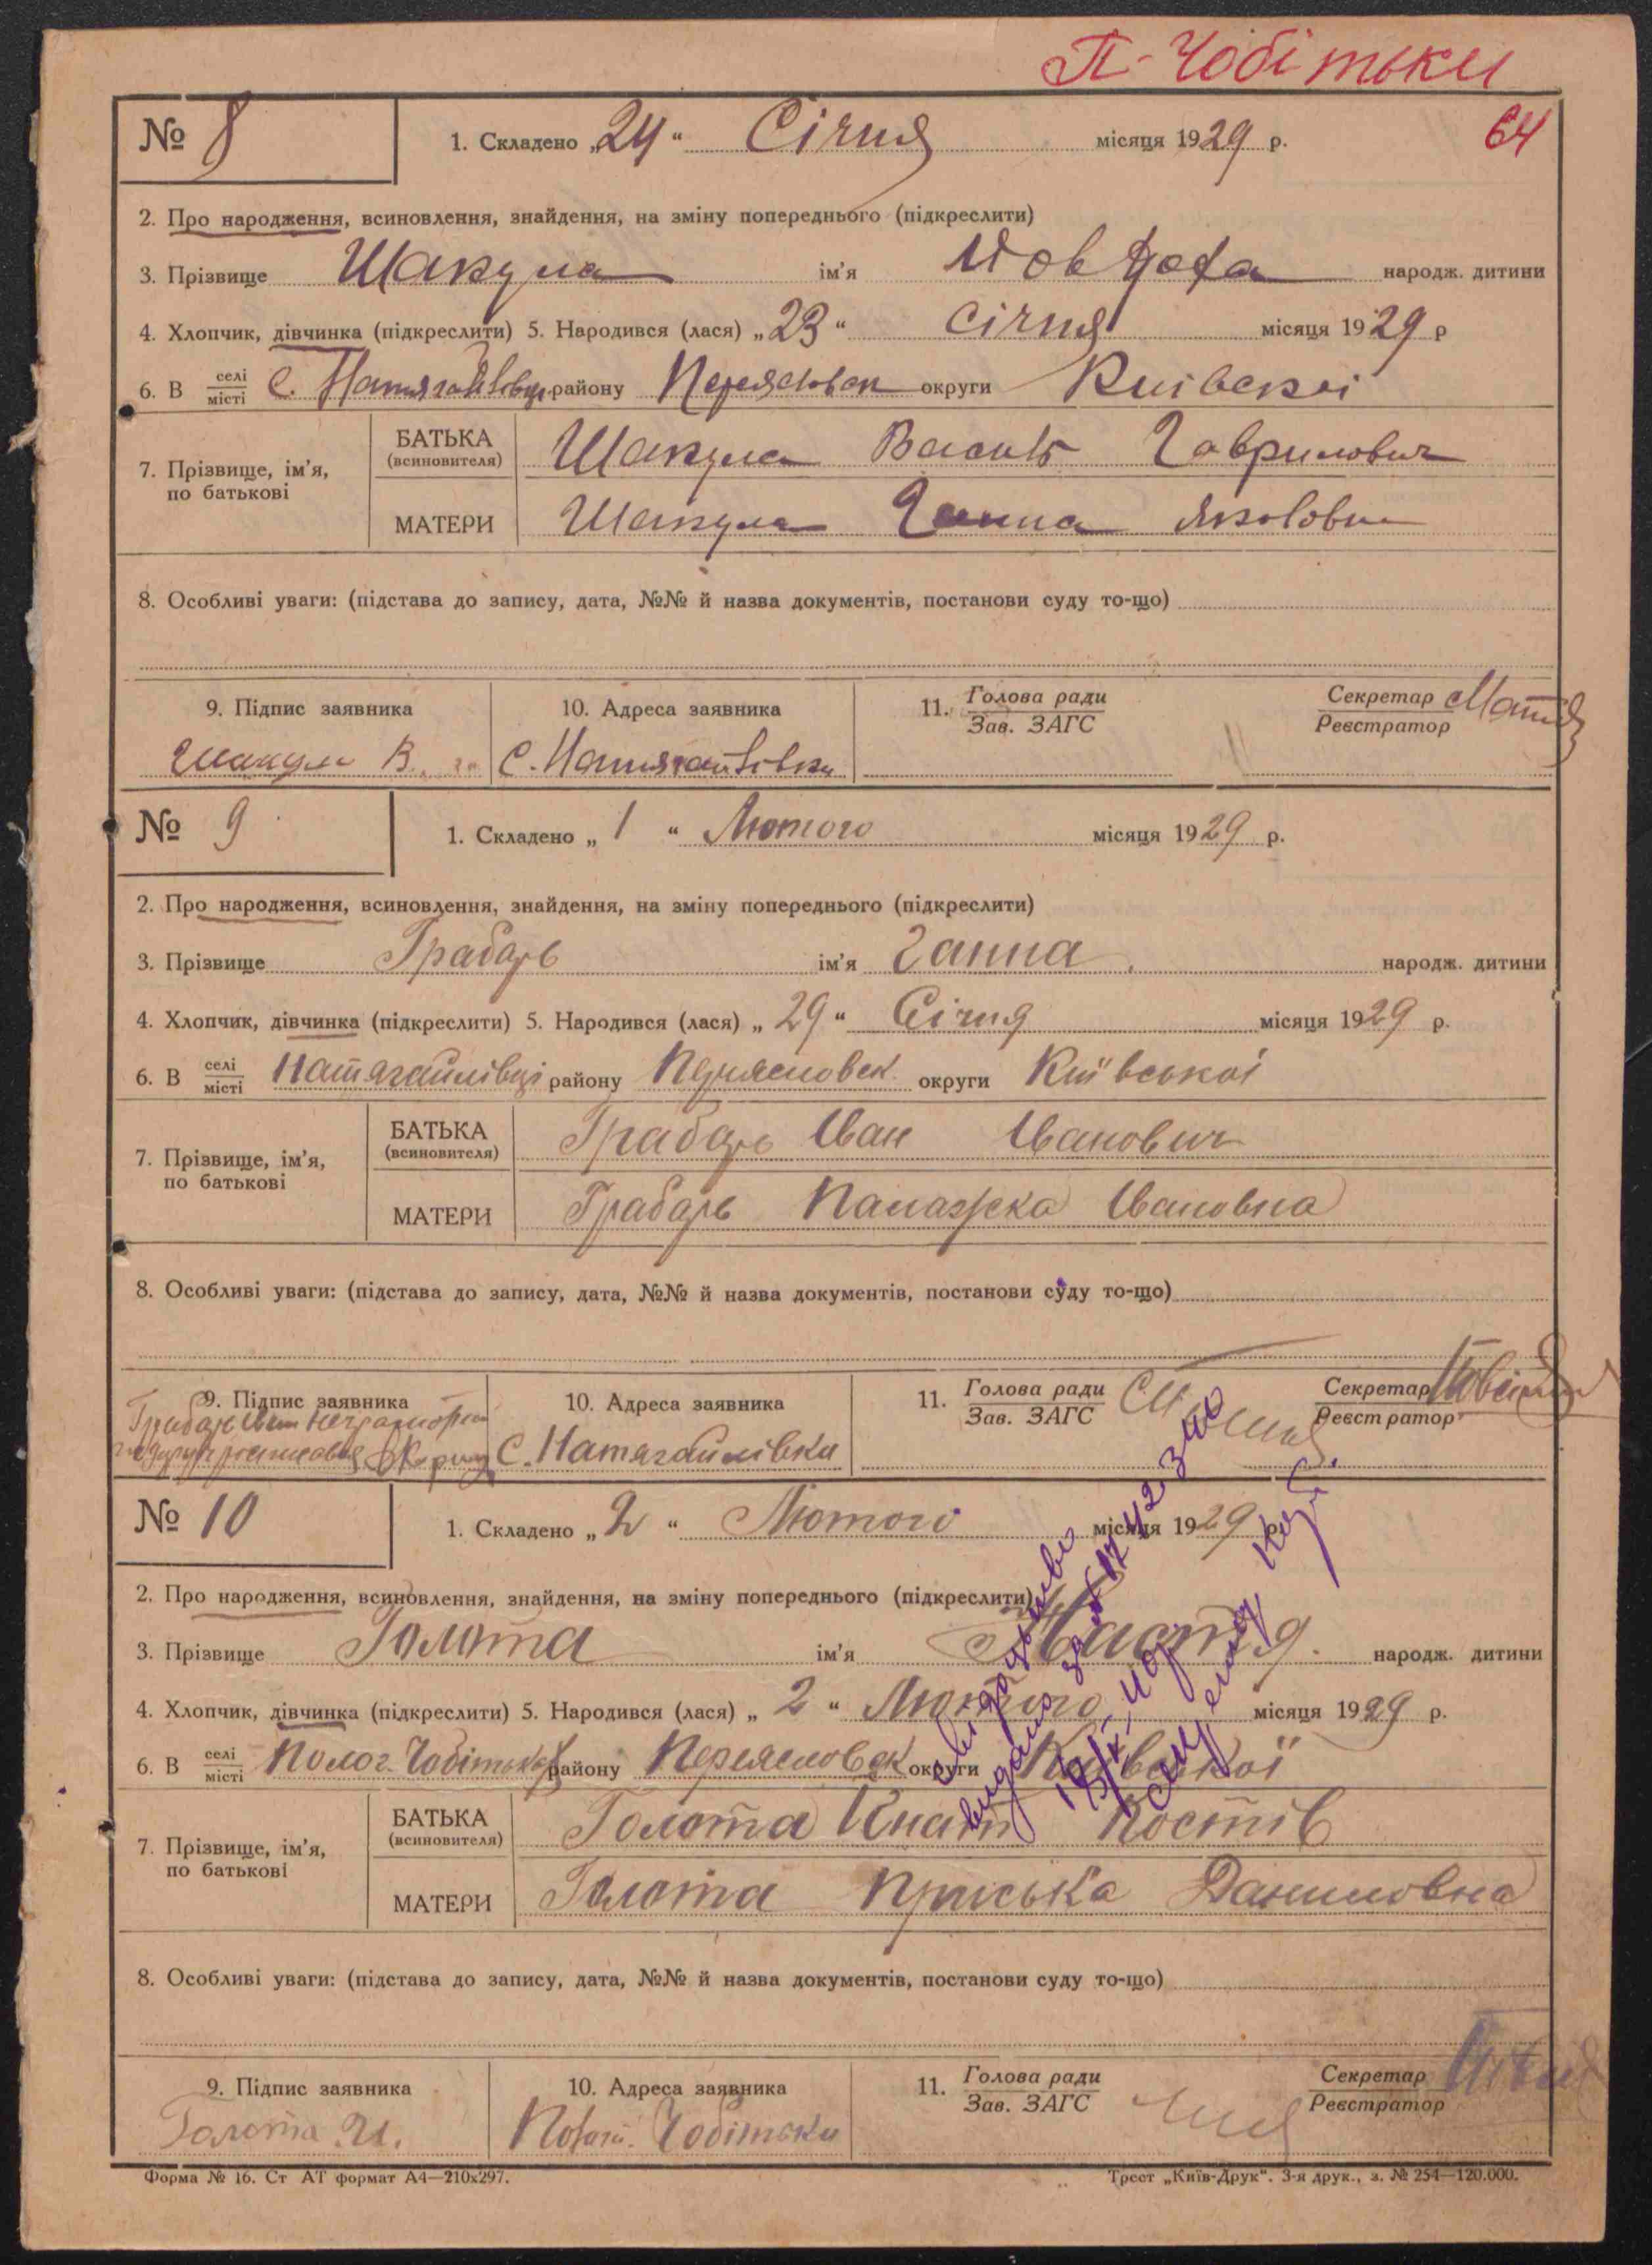 П-Чобітьки
64
№ 8
1. Складено „24“ Січня місяця 1929 р.
2. Про народження, всиновлення, знайдення, на зміну попереднього (підкреслити)
3. Прізвище Шакула ім'я Мовдоха народж. дитини
4. Хлопчик, дівчинка (підкреслити) 5. Народився (лася) „23“ січня місяця 1929 р
6. В селі місті С. Натягайлівці району Переясловск округи Київскоі
7. Прізвище, ім'я, по батькові
БАТЬКА (всиновителя) Шакула Василь Гаврилович
МАТЕРИ Шакула Ганна Якововна
8. Особливі уваги: (підстава до запису, дата, №№ й назва документів, постанови суду то-що)
9. Підпис заявника
Шакула В.
10. Адреса заявника
С. Натягайлівки
11. Голова ради Зав. ЗАГС
Секретар Реєстратор
№ 9
1. Складено „1“ Лютого місяця 1929 р.
2. Про народження, всиновлення, знайдення, на зміну попереднього (підкреслити)
3. Прізвище Грабарь ім'я Ганна народж. дитини
4. Хлопчик, дівчинка (підкреслити) 5. Народився (лася) „29“ Січня місяця 1929 р.
6. В селі місті Натягайлівці району Переясловск округи Київськоі
7. Прізвище, ім'я, по батькові
БАТЬКА (всиновителя) Грабарь Иван Иванович
МАТЕРИ Грабарь Палажка Ивановна
8. Особливі уваги: (підстава до запису, дата, №№ й назва документів, постанови суду то-що)
9. Підпис заявника
Грабарь Иван
10. Адреса заявника
С. Натягайлівки
11. Голова ради Зав. ЗАГС
Секретар Реєстратор
№ 10
1. Складено „2“ Лютого місяця 1929 р.
2. Про народження, всиновлення, знайдення, на зміну попереднього (підкреслити)
3. Прізвище Голота ім'я Настя. народж. дитини
4. Хлопчик, дівчинка (підкреслити) 5. Народився (лася) „2“ Лютого місяця 1929 р.
6. В селі місті Полог. Чобітьках району Переясловск округи Київської
7. Прізвище, ім'я, по батькові
БАТЬКА (всиновителя) Голота Игнат Костів
МАТЕРИ Голота Приська Даниловна
8. Особливі уваги: (підстава до запису, дата, №№ й назва документів, постанови суду то-що)
9. Підпис заявника
Голота И.
10. Адреса заявника
Полог. Чобітьки
11. Голова ради Зав. ЗАГС
Секретар Реєстратор
Форма № 16. Ст АТ формат А4—210х297.
Трест „Київ-Друк“. 3-я друк., з. № 254—120.000.